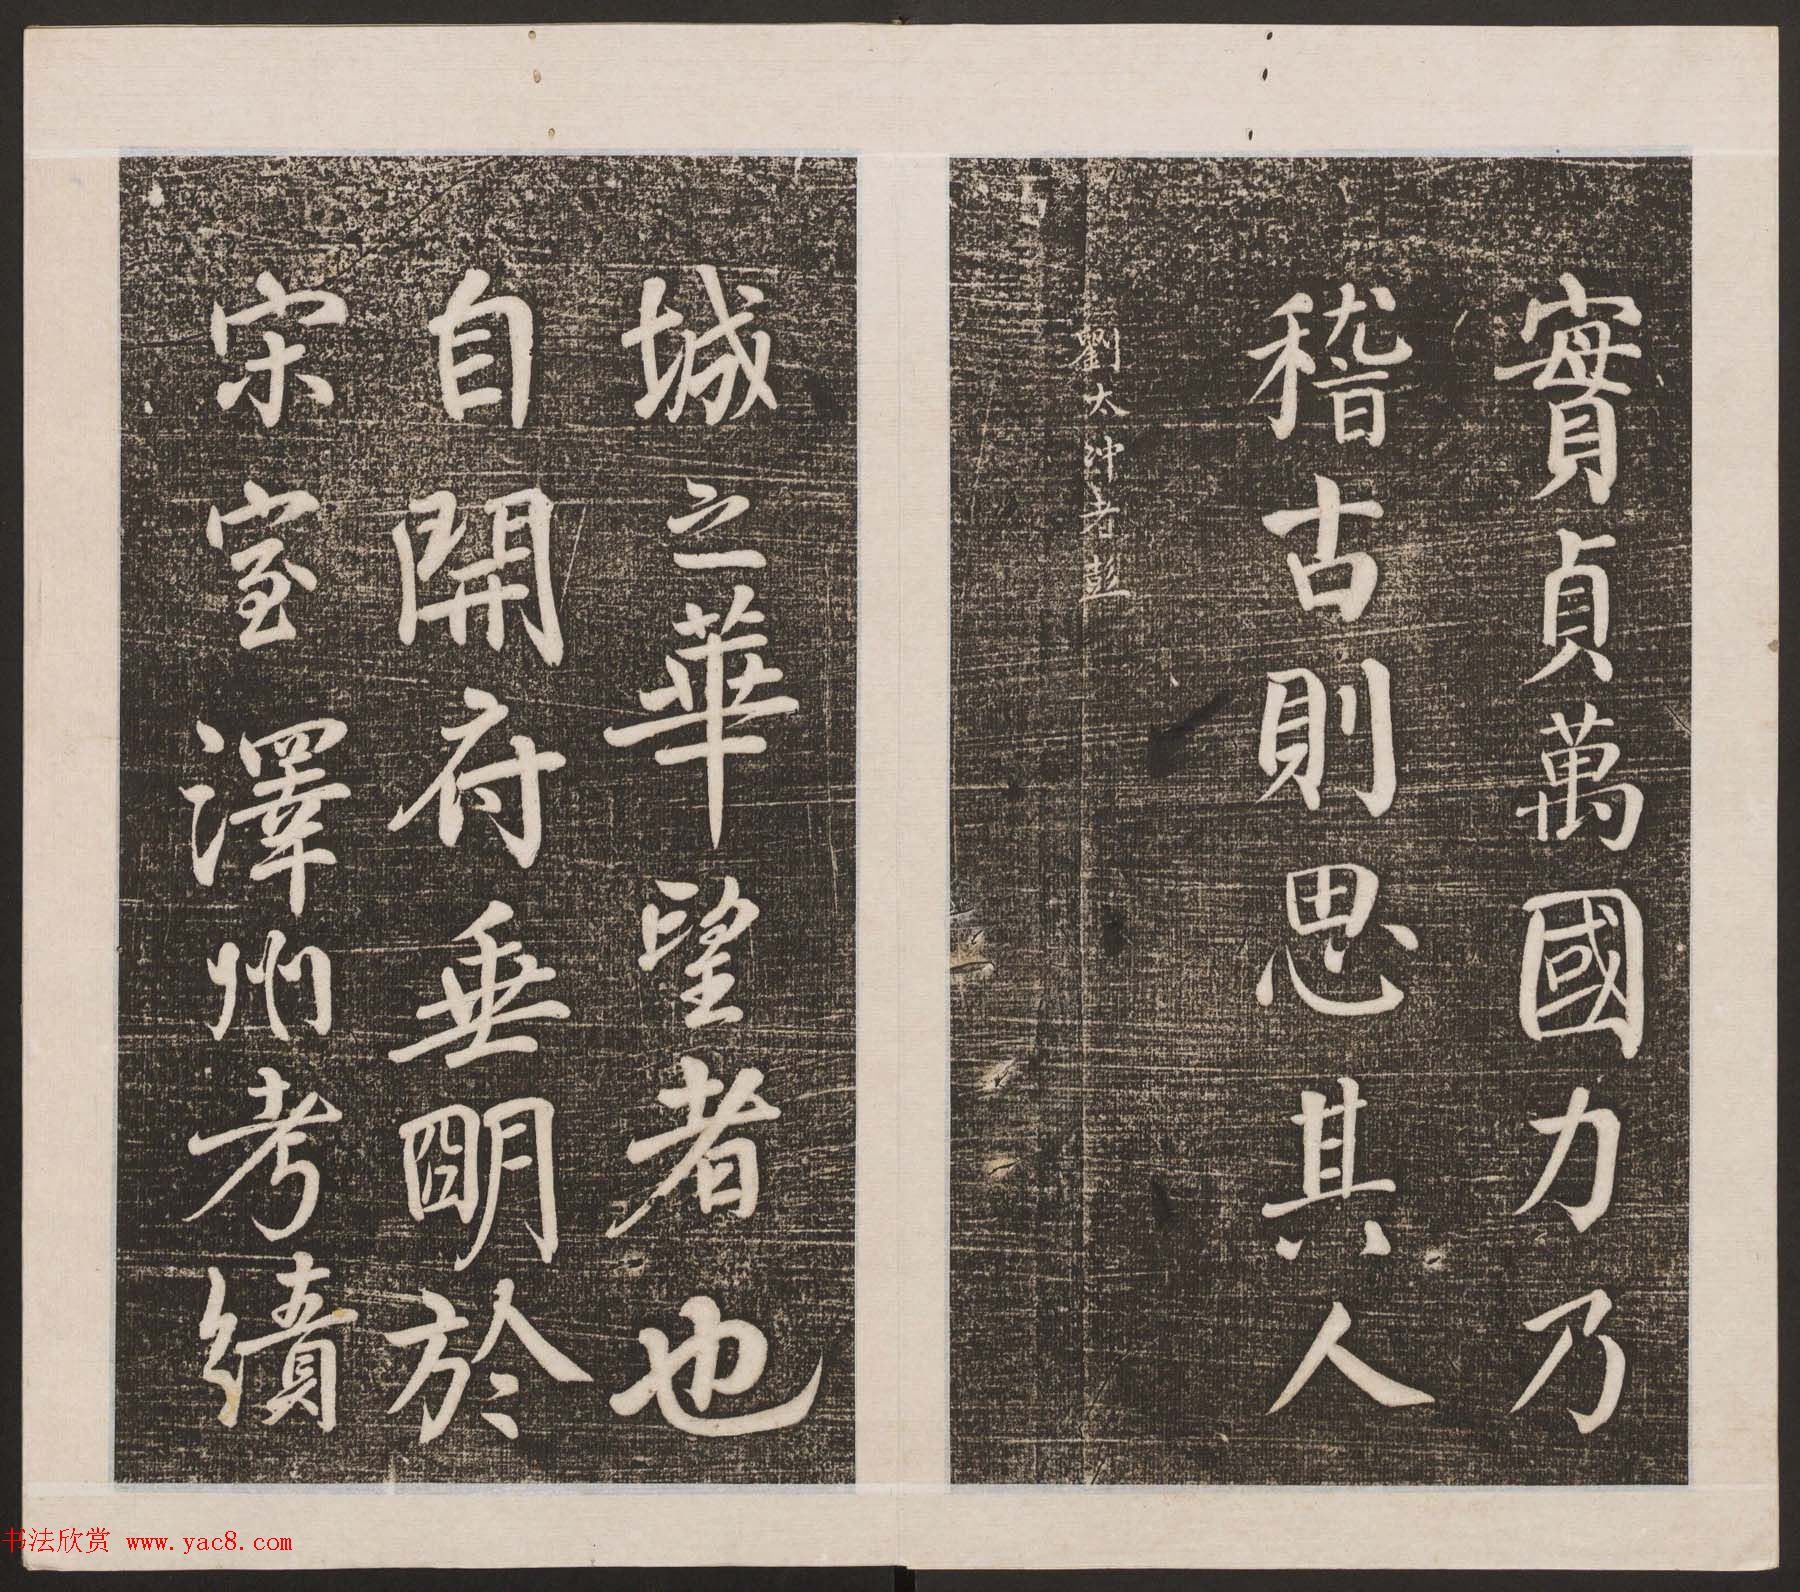 寶貞萬國力乃
稽古則思其人
劉太沖者彭
城之華望者也
自開府垂明於
宋室澤州考績
书法欣赏 www.yac8.com